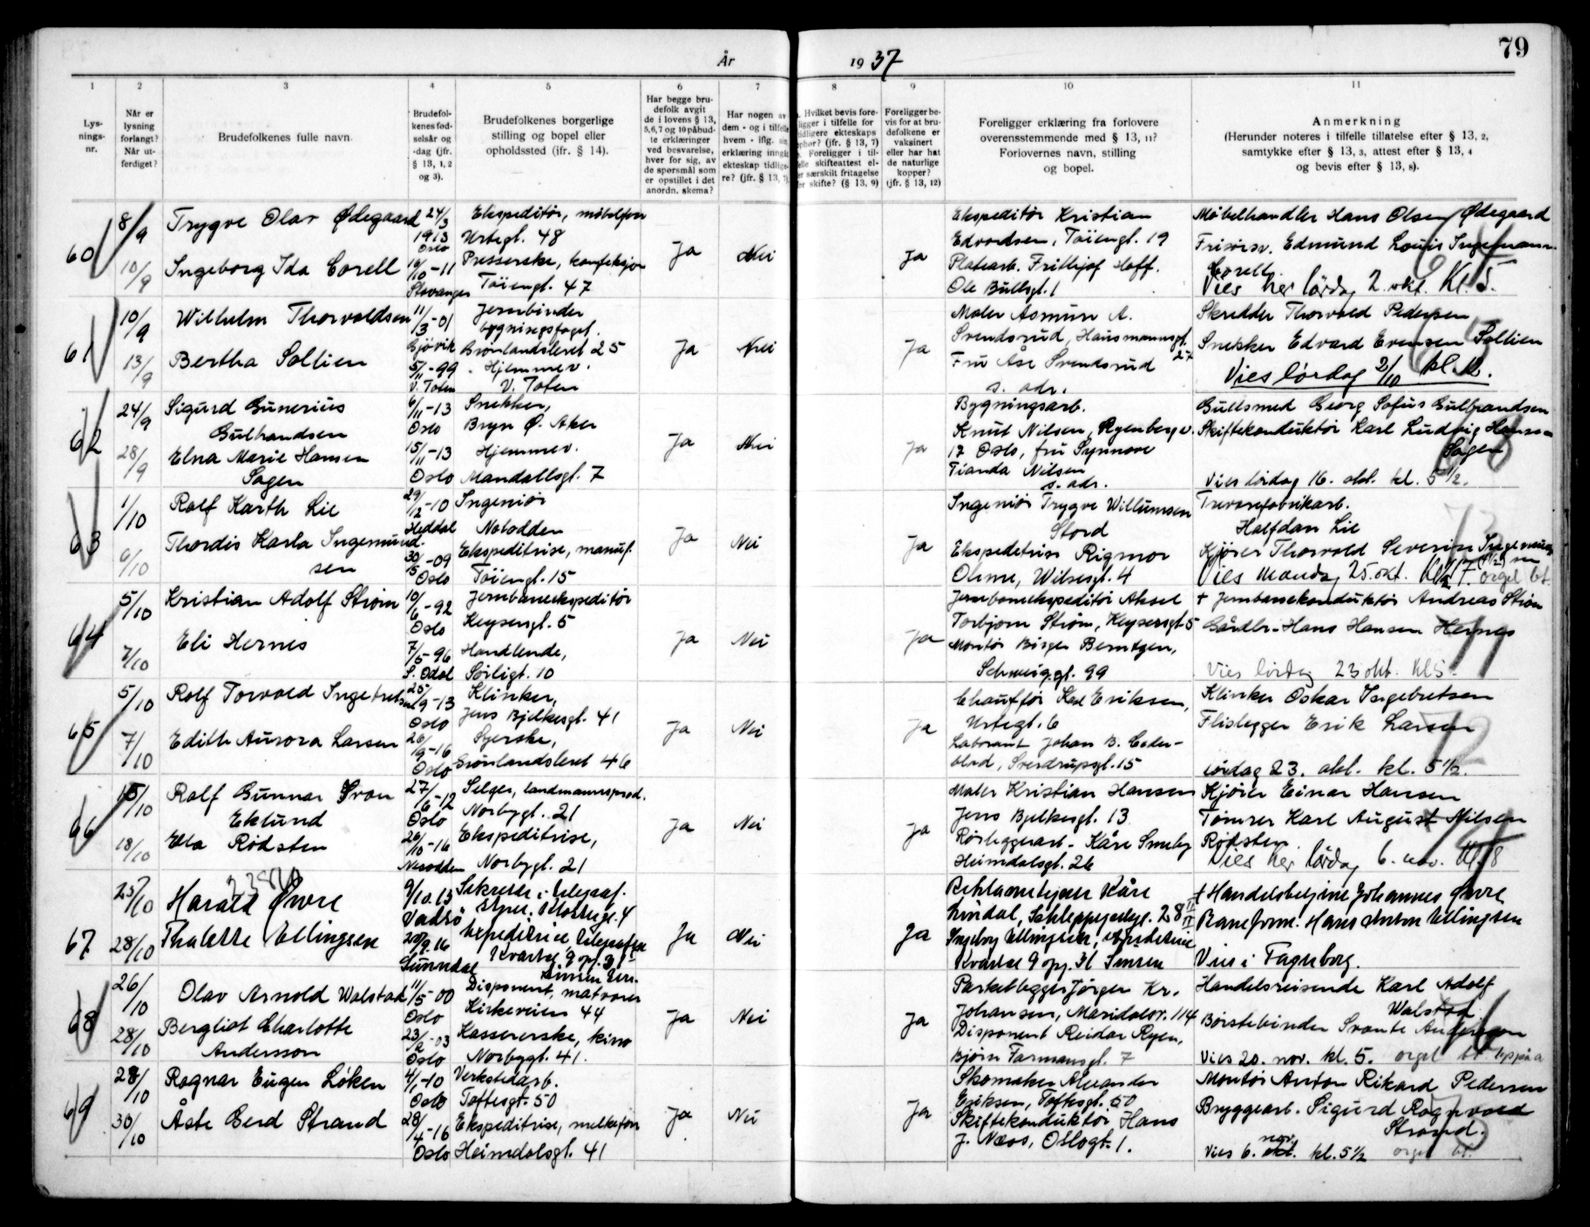 År 1937
79
1 2 3 4 5 6 7 8 9 10 11
Lys-
nings-
nr.
Når er
lysning
forlangt?
Når ut-
ferdiget?
Brudefolkenes fulle navn.
Brudefol-
kenes fød-
selsår og
-dag (jfr.
§ 13, 1, 2
og 3).
Brudefolkenes borgerlige
stilling og bopel eller
opholdssted (ifr. § 14).
Har begge bru-
defolk avgit
de i lovens § 13,
5,6,7 og 10 påbud-
te erklæringer
ved besvarelse,
hver for sig, av
de spørsmål som
er opstillet i det
anordn. skema?
Har nogen av
dem - og i tilfelle
hvem - iflg.
erklæring inngått
ekteskap tidlige-
re? (jfr. § 13,
Hvilket bevis fore-
ligger i tilfelle for
tidligere ekteskaps
ophør? (jfr. § 13, 7)
Foreligger i til-
felle skifteattest el-
ler særskilt fritagelse
for skifte? (§ 13, 9)
Foreligger be-
vis for at bru-
defolkene er
vaksinert
eller har hat
de naturlige
kopper?
(jfr. § 13, 12)
Foreligger erklæring fra forlovere
overensstemmende med § 13, 11?
Forlovernes navn, stilling
og bopel.
Anmerkning
(Herunder noteres i tilfelle tillatelse efter § 13, 2,
samtykke efter § 13, 3, attest efter § 13, 4
og bevis efter § 13, 8).
60
8/9
10/9
Trygve Olav Ødegaard
Ingeborg Ida Corell
24/3
1913
Oslo
16/10-11
Stavanger
Ekspeditør, møbelforr.
Urtegt. 48
Presserske, konfeksjon
Tøiengt. 47
Ja
Nei
Ja
Ekspeditør Kristian
Edvardsen, Tøiengt. 19
Platearb. Frithjof Hoff.
Ole Bullsgt. 1
Møbelhandler Hans Olsen Ødegaard
Frisørsv. Edmund Louis Ingemann
Corell.
Vies her lørdag 2. okt. Kl. 5.
61
10/9
13/9
Wilhelm Thorvaldsen
Bertha Sollien
11/3-01
Gjøvik
5/11-99
V. Toten
Jernbinder
bygningsfaget.
Grønlandsleret 25
Hjemmev.
V. Toten
Ja
Nei
Ja
Maler Asmun A.
Svendsrud, Hausmannsgt.
27
Fru Åse Svendsrud
s. adr.
Skredder Thorvald Pedersen
Snekker Edvard Evensen Sollien
Vies lørdag 2/10 kl.
62
24/9
28/9
Sigurd Gunerius
Gulbrandsen
Elna Marie Hansen
Sagen
6/11-13
Oslo
15/11-13
Oslo
Snekker,
Bryn Ø. Aker
Hjemmev.
Mandallsgt. 7
Ja
Nei
Ja
Bygningsarb.
Knut Nilsen, Ryenbergv.
12 Oslo, fru Synnøve
Tianda Nilsen
s. adr.
Gullsmed Georg Sofus Gulbrandsen
Skiftekonduktør Karl Ludvig Hansen
Sagen
68
Vies lørdag 16. okt. kl. 5 1/2.
63
1/10
6/10
Rolf Karth Lie
Thordis Karla Ingemund-
sen
29/12-10
Heddal
30/-09
Oslo
Ingeniør
Notodden
Ekspeditrise, manuf.
Tøiengt. 15
Ja
Nei
Ja
Ingeniør Trygve Willumsen
Stord
Ekspeditrise Rigmor
Olsme, Wilsesgt. 4
Trevarefabrikarb.
Halfdan Lie
Kjører Thorvald Severin Ingemundsen
Vies Mandag 25. okt. Kl. orgel bt.
64
5/10
7/10
Kristian Adolf Strøm
Eli Hernes
10/6-92
Oslo
7/5-96
S. Odal
Jernbaneekspeditør
Keysersgt. 5
Handlende,
Sørligt. 10
Ja
Nei
Ja
Jernbaneekspeditør Aksel
Torbjørn Strøm, Keysersgt 5
Montør Birger Berntzen,
Schweigsgt. 99
+ Jernbanekonduktør Andreas Strøm
Gårdbr. Hans Hansen Hernes
Vies lørdag 23 okt. kl 5.
65
5/10
7/10
Rolf Torvald Ingebretsen
Edith Aurora Larsen
25/9-13
Oslo
26/9-16
Oslo
Klinker,
Jens Bjelkesgt. 41
Syerske,
Grønlandsleret 46
Ja
Nei
Ja
Chauffør Karl Eriksen,
Urtegt. 6
Laborant Johan B. Ceder-
blad, Sverdrupsgt. 15
Klinker Oskar Ingebretsen
Flislegger Erik Larsen
72
lørdag 23. okt. kl. 5 1/2.
66
15/10
18/10
Rolf Gunnar Svan
Eklund
Ella Rødsten
27/6-12
Oslo
26/10-16
Nesodden
Selger, landmannsprod.
Norbygt. 21
Ekspeditrise,
Norbygt. 21
Ja
Nei
Ja
Maler Kristian Hansen
Jens Bjelkesgt. 13.
Rørleggerarb. Kåre Smeby
Heimdalsgt. 26
Kjører Einar Hansen
Tømrer Karl August Nilsen
Rødsten.
Vies her lørdag 6. nov. Kl. 8
67
25/10
28/10
Harald Øvre
Thalette Ellingsen
9/10.13
Vadsø
20/9.16
Sunndal
Kvartal 9 op. 31
Ja
Nei
Ja
Reklametegner Kåre
Lindal,
Ingeborg Ellingsen,
Kvartal 9 opg. 31 Sinsen
+ Handelsbetjene Johannes Øvre
Baneform. Hans Anton Ellingsen
Vies i Fagerborg.
68
26/10
28/10
Olav Arnold Walstad
Bergliot Charlotte
Andersson
11/5-00
Oslo
23/2-03
Oslo
Disponent, matvarer
Kirkeveien 44
Kassererske, kino
Norbygt. 41.
Ja
Nei
Ja
Parketlegger Jørgen Kr.
Johansen, Maridalsv. 114
Disponent Reidar Ryen,
Bjørn Farmansgt. 7
Handelsreisende Karl Adolf
Walstad
Børstebinder Svante Andersson
Vies 20. nov. kl. 5. orgel bt.
69
28/10
30/10
Ragnar Eugen Løken
Åste Berd Strand
4/1-10
Oslo
28/4-16
Oslo
Verkstedarb.
Toftesgt. 50
Ekspeditrise, melkeforr.
Heimdalsgt. 41
Ja
Nei
Ja
Skomaker Alexander
Eriksen, Toftesgt. 50
Skiftekonduktør Hans
J. Næss, Oslogt. 1.
Montør Anton Rikard Pedersen
Bryggearb. Sigurd Ragnvald
Strand.
nov.
Vies 6. okt. kl. 5 1/2 orgel bt.